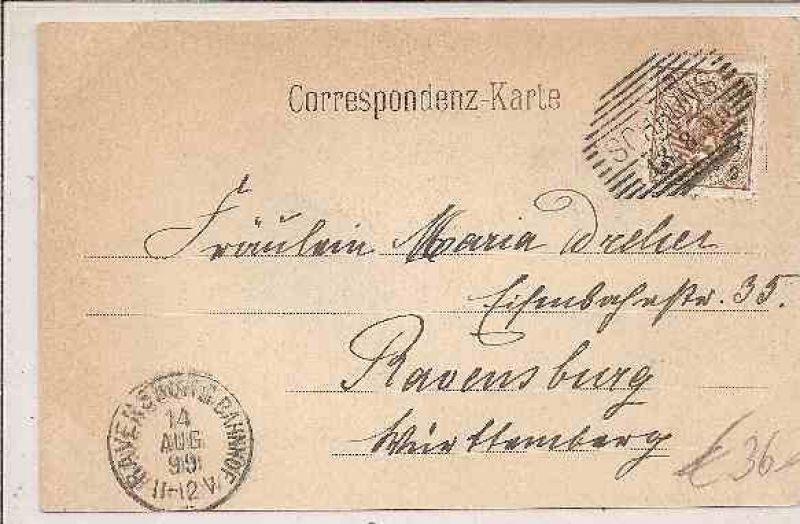 Correspondenz-Karte
Fräulein Maria Dreher
Eisenbahnstr. 35.
Ravensburg
Württemberg
RAVENSBURG BAHNHOF
14
AUG
99
11-12 V
36